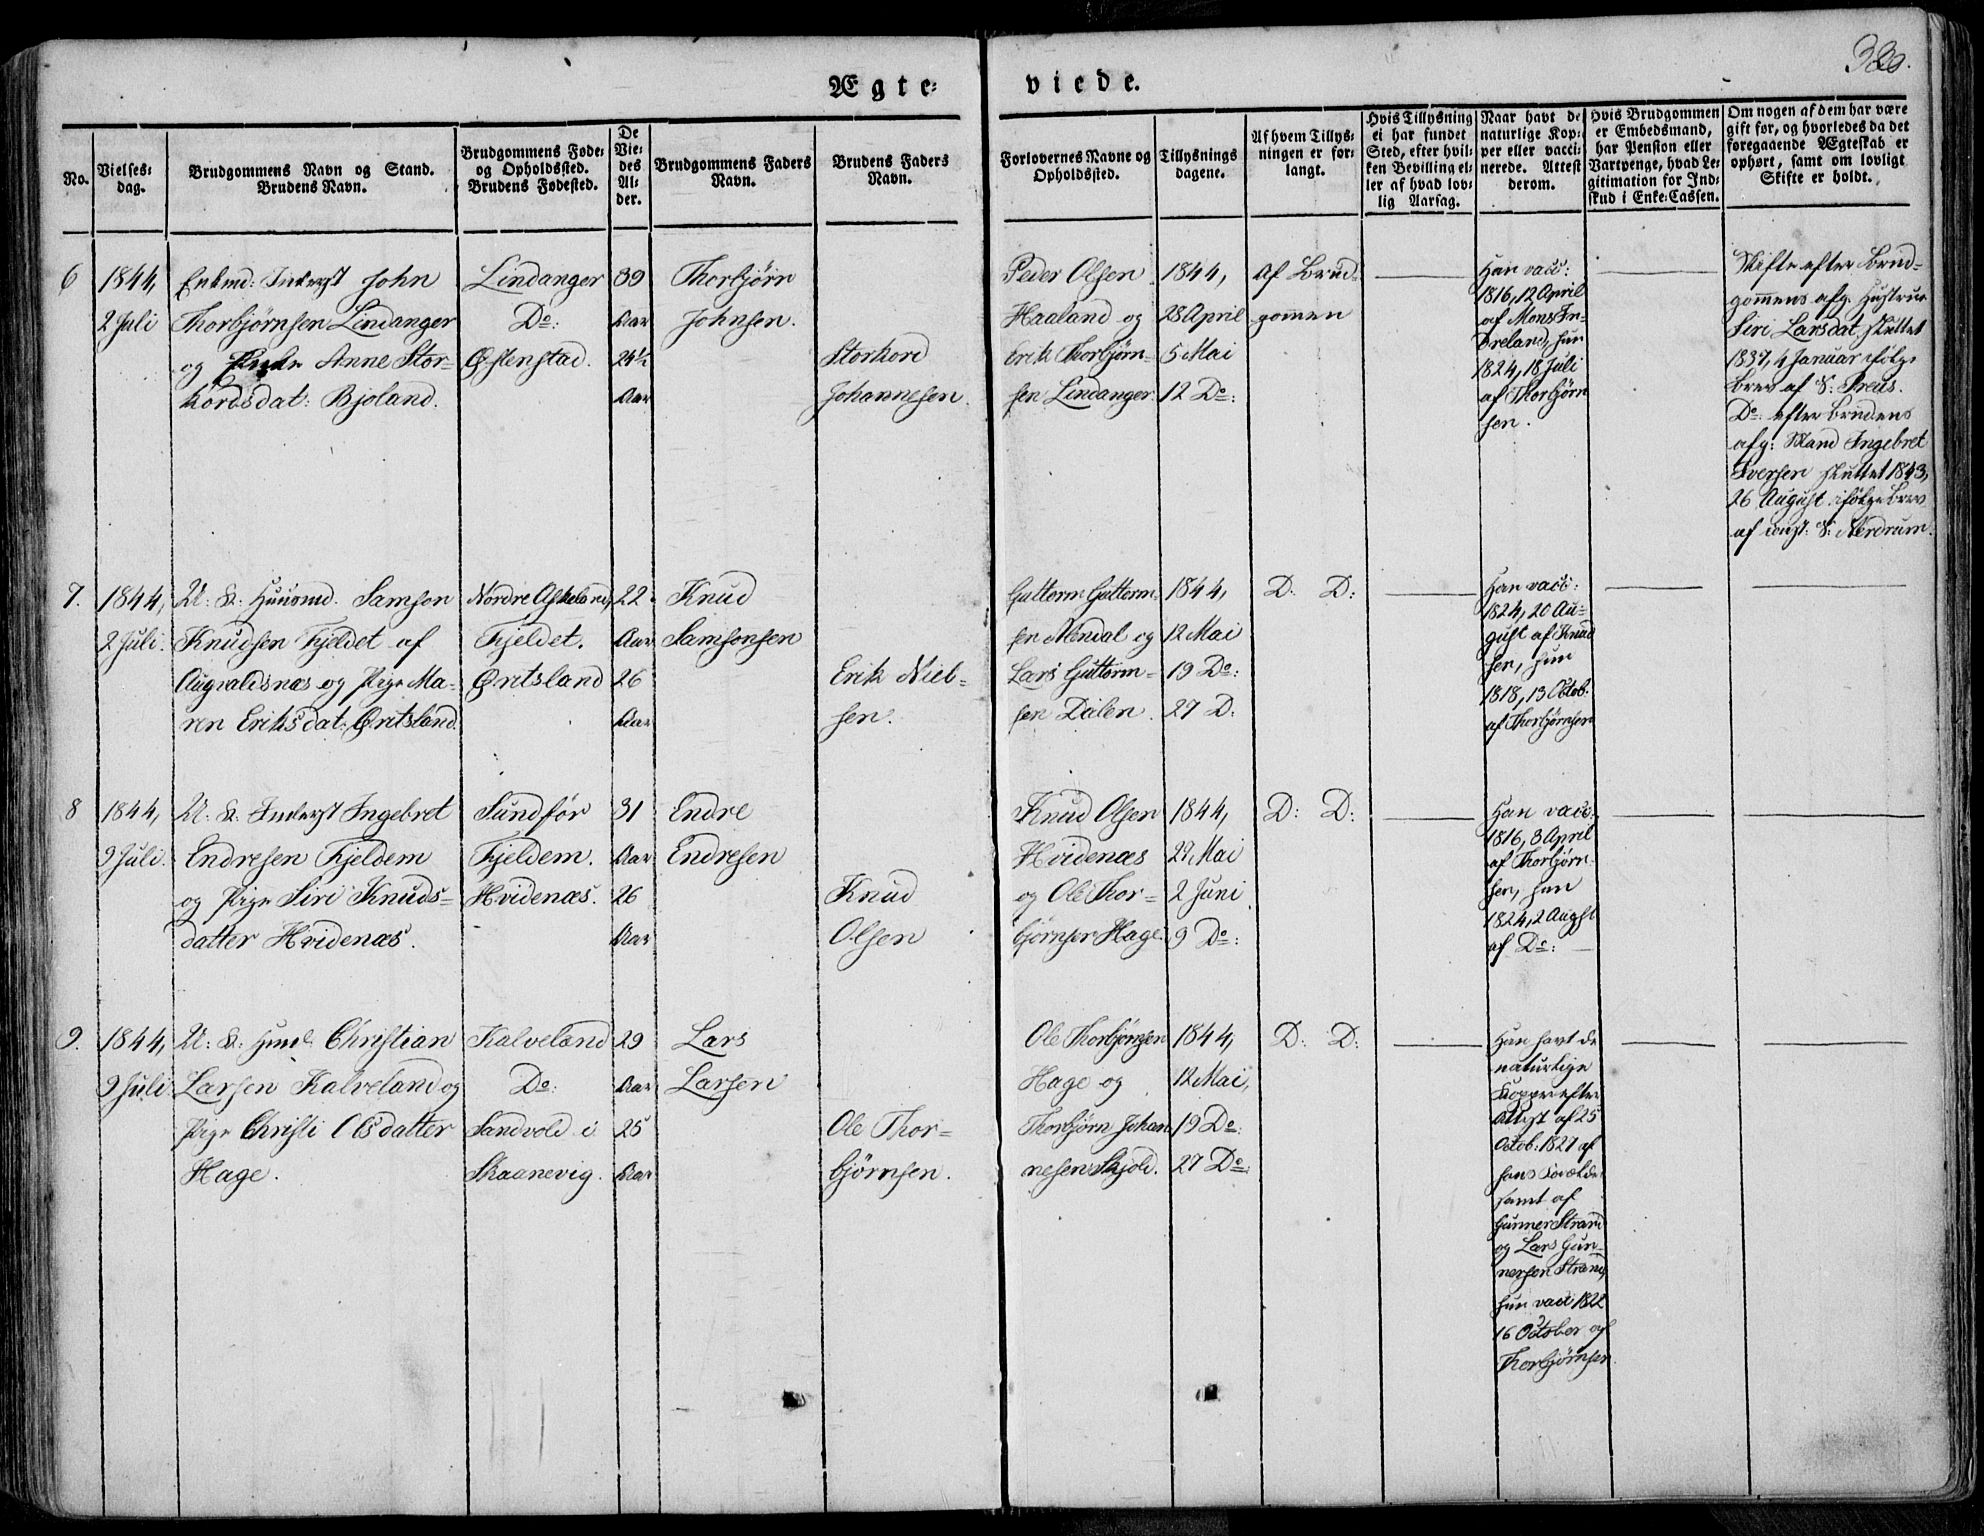 380.
Ægte- viede.
No.
Vielses-
dag.
Brudgommens Navn og Stand.
Brudens Navn.
Brudgommens Føde-
og Opholdssted.
Brudens Fødested.
De
Vie-
des
Al-
der.
Brudgommens Faders
Navn.
Brudens Faders
Navn.
Forlovernes Navne og
Opholdssted.
Tillysnings
dagene.
Af hvem Tillys-
ningen er for-
langt.
Hvis Tillysning
ei har fundet
Sted, efter hvil-
ken Bevilling el-
ler af hvad lov-
lig Aarsag.
Naar havt de
naturlige Kop-
per eller vacci-
nerede. Attest
derom.
Hvis Brudgommen
er Embedsmand,
har Pension eller
Vartpenge, hvad Le-
gitimation for Ind-
skud i Enke-Cassen.
Om nogen af dem har være
gift før, og hvorledes da det
foregaaende Ægteskab er
ophørt, samt om lovligt
Skifte er holdt.
6
1844,
2 Juli
Enkmd: Inderst John
Thorbjørnsen Lindanger
og Anne Stor-
kordsdat: Bjoland.
Lindanger
Do:
Østenstad.
39
Aar
24½
Aar
Thorbjørn
Johnsen.
Storkord
Johannesen.
Peder Olsen
Haaland og
Erik Thorbjørn-
sen Lindanger
1844,
28 April
5 Mai
12 Do:
Af Brud-
gommen
Han vacc:
1816, 12 April
af Mons In-
dreland, hun
1824, 18 Juli
af Thorbjørn
sen.
Skifte efter Brud-
gommens afg: Hustrue
Siri Larsdat, sluttet
1837, 4 Januar ifølge
Brev af S: Preus.
Do: efter Brudens
afg: Mand Ingebret
Iversen sluttet 1843,
26 August ifølge Brev
af const: S: Nerdrum.
7.
1844,
2 Juli.
U: K: Huusmd. Samson
Knudsen Fjeldet af
Augvaldsnæs og Pige Ma-
ren Eriksdat: Øritsland.
Nordre Askeland,
Fjeldet.
Øritsland
22
Aar
26
Aar
Knud
Samsonsen
Erik Niel-
sen.
Guttorm Guttorm-
sen Mendal og
Lars Guttorm-
sen Dalen.
1844,
12 Mai
19 Do:
27 D:
D: D:
Han vacc:
1824, 20 Au-
gust af Knud
sen, hun
1818, 13 Octob:
af Thorbjørnsen
8
1844,
9 Juli.
U: K: Inderst Ingebret
Endresen Fjeldem
og Pige Siri Knuds-
datter Hvidenæs.
Sundfør
Fjeldem.
Hvidenæs.
31
Aar
26
Aar
Endre
Endresen
Knud
Olsen
Knud Olsen
Hvidenæs
og Ole Thor-
bjørnsen Hage.
1844,
27 Mai
2 Juni
9 Do:
D: D:
Han vacc.
1816, 3 April
af Thorbjørn-
sen, hun
1824, 2 Augst
af Do:
9.
1844,
9 Juli
U: K: Christian
Larsen Kalveland og
Pige Christi Olsdatter
Hage.
Kalveland
Do:
Sandvold i
Skaanevig.
29
Aar
25
Aar
Lars
Larsen
Ole Thor-
bjørnsen.
Ole Thorbjørnsen
Hage og
Thorbjørn Johan
nesen Skjold.
1844,
12 Mai,
19 Do:
27 Do:
D: D:
Han havt de
naturlige
Kopper efter
Attest af 25
Octob: 1827 af
hans Forældre
samt af
Gunner Strand
og Lars Gun-
nersen Strand,
hun vacc 1822
16 October af
Thorbjørnsen.